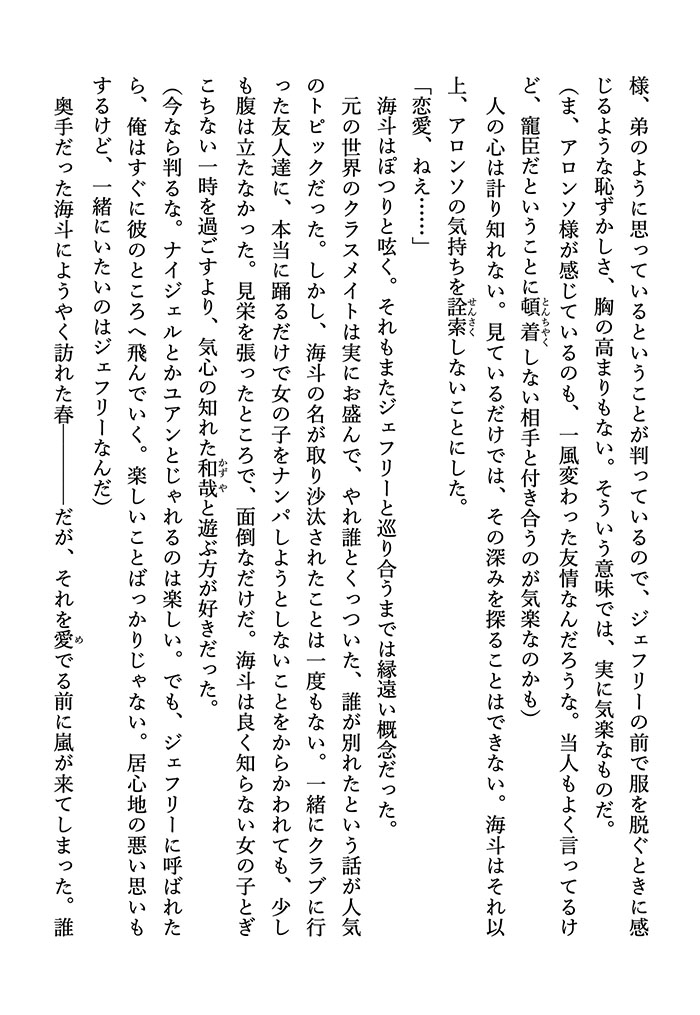 様、弟のように思っているということが判っているので、ジェフリーの前で服を脱ぐときに感
じるような恥ずかしさ、胸の高まりもない。そういう意味では、実に気楽なものだ。
(ま、アロンソ様が感じているのも、一風変わった友情なんだろうな。当人もよく言ってるけ
ど、寵臣だということに頓着しない相手と付き合うのが気楽なのかも)
人の心は計り知れない。見ているだけでは、その深みを探ることはできない。海斗はそれ以
上、アロンソの気持ちを詮索しないことにした。
「恋愛、ねえ……」
海斗はぽつりと呟く。それもまたジェフリーと巡り合うまでは縁遠い概念だった。
元の世界のクラスメイトは実にお盛んで、やれ誰とくっついた、誰が別れたという話が人気
のトピックだった。しかし、海斗の名が取り沙汰されたことは一度もない。一緒にクラブに行
った友人達に、本当に踊るだけで女の子をナンパしようとしないことをからかわれても、少し
も腹は立たなかった。見栄を張ったところで、面倒なだけだ。海斗は良く知らない女の子とぎ
こちない一時を過ごすより、気心の知れた和哉と遊ぶ方が好きだった。
(今なら判るな。ナイジェルとかユアンとじゃれるのは楽しい。でも、ジェフリーに呼ばれた
ら、俺はすぐに彼のところへ飛んでいく。楽しいことばっかりじゃない。居心地の悪い思いも
するけど、一緒にいたいのはジェフリーなんだ)
奥手だった海斗にようやく訪れた春――だが、それを愛でる前に嵐が来てしまった。誰